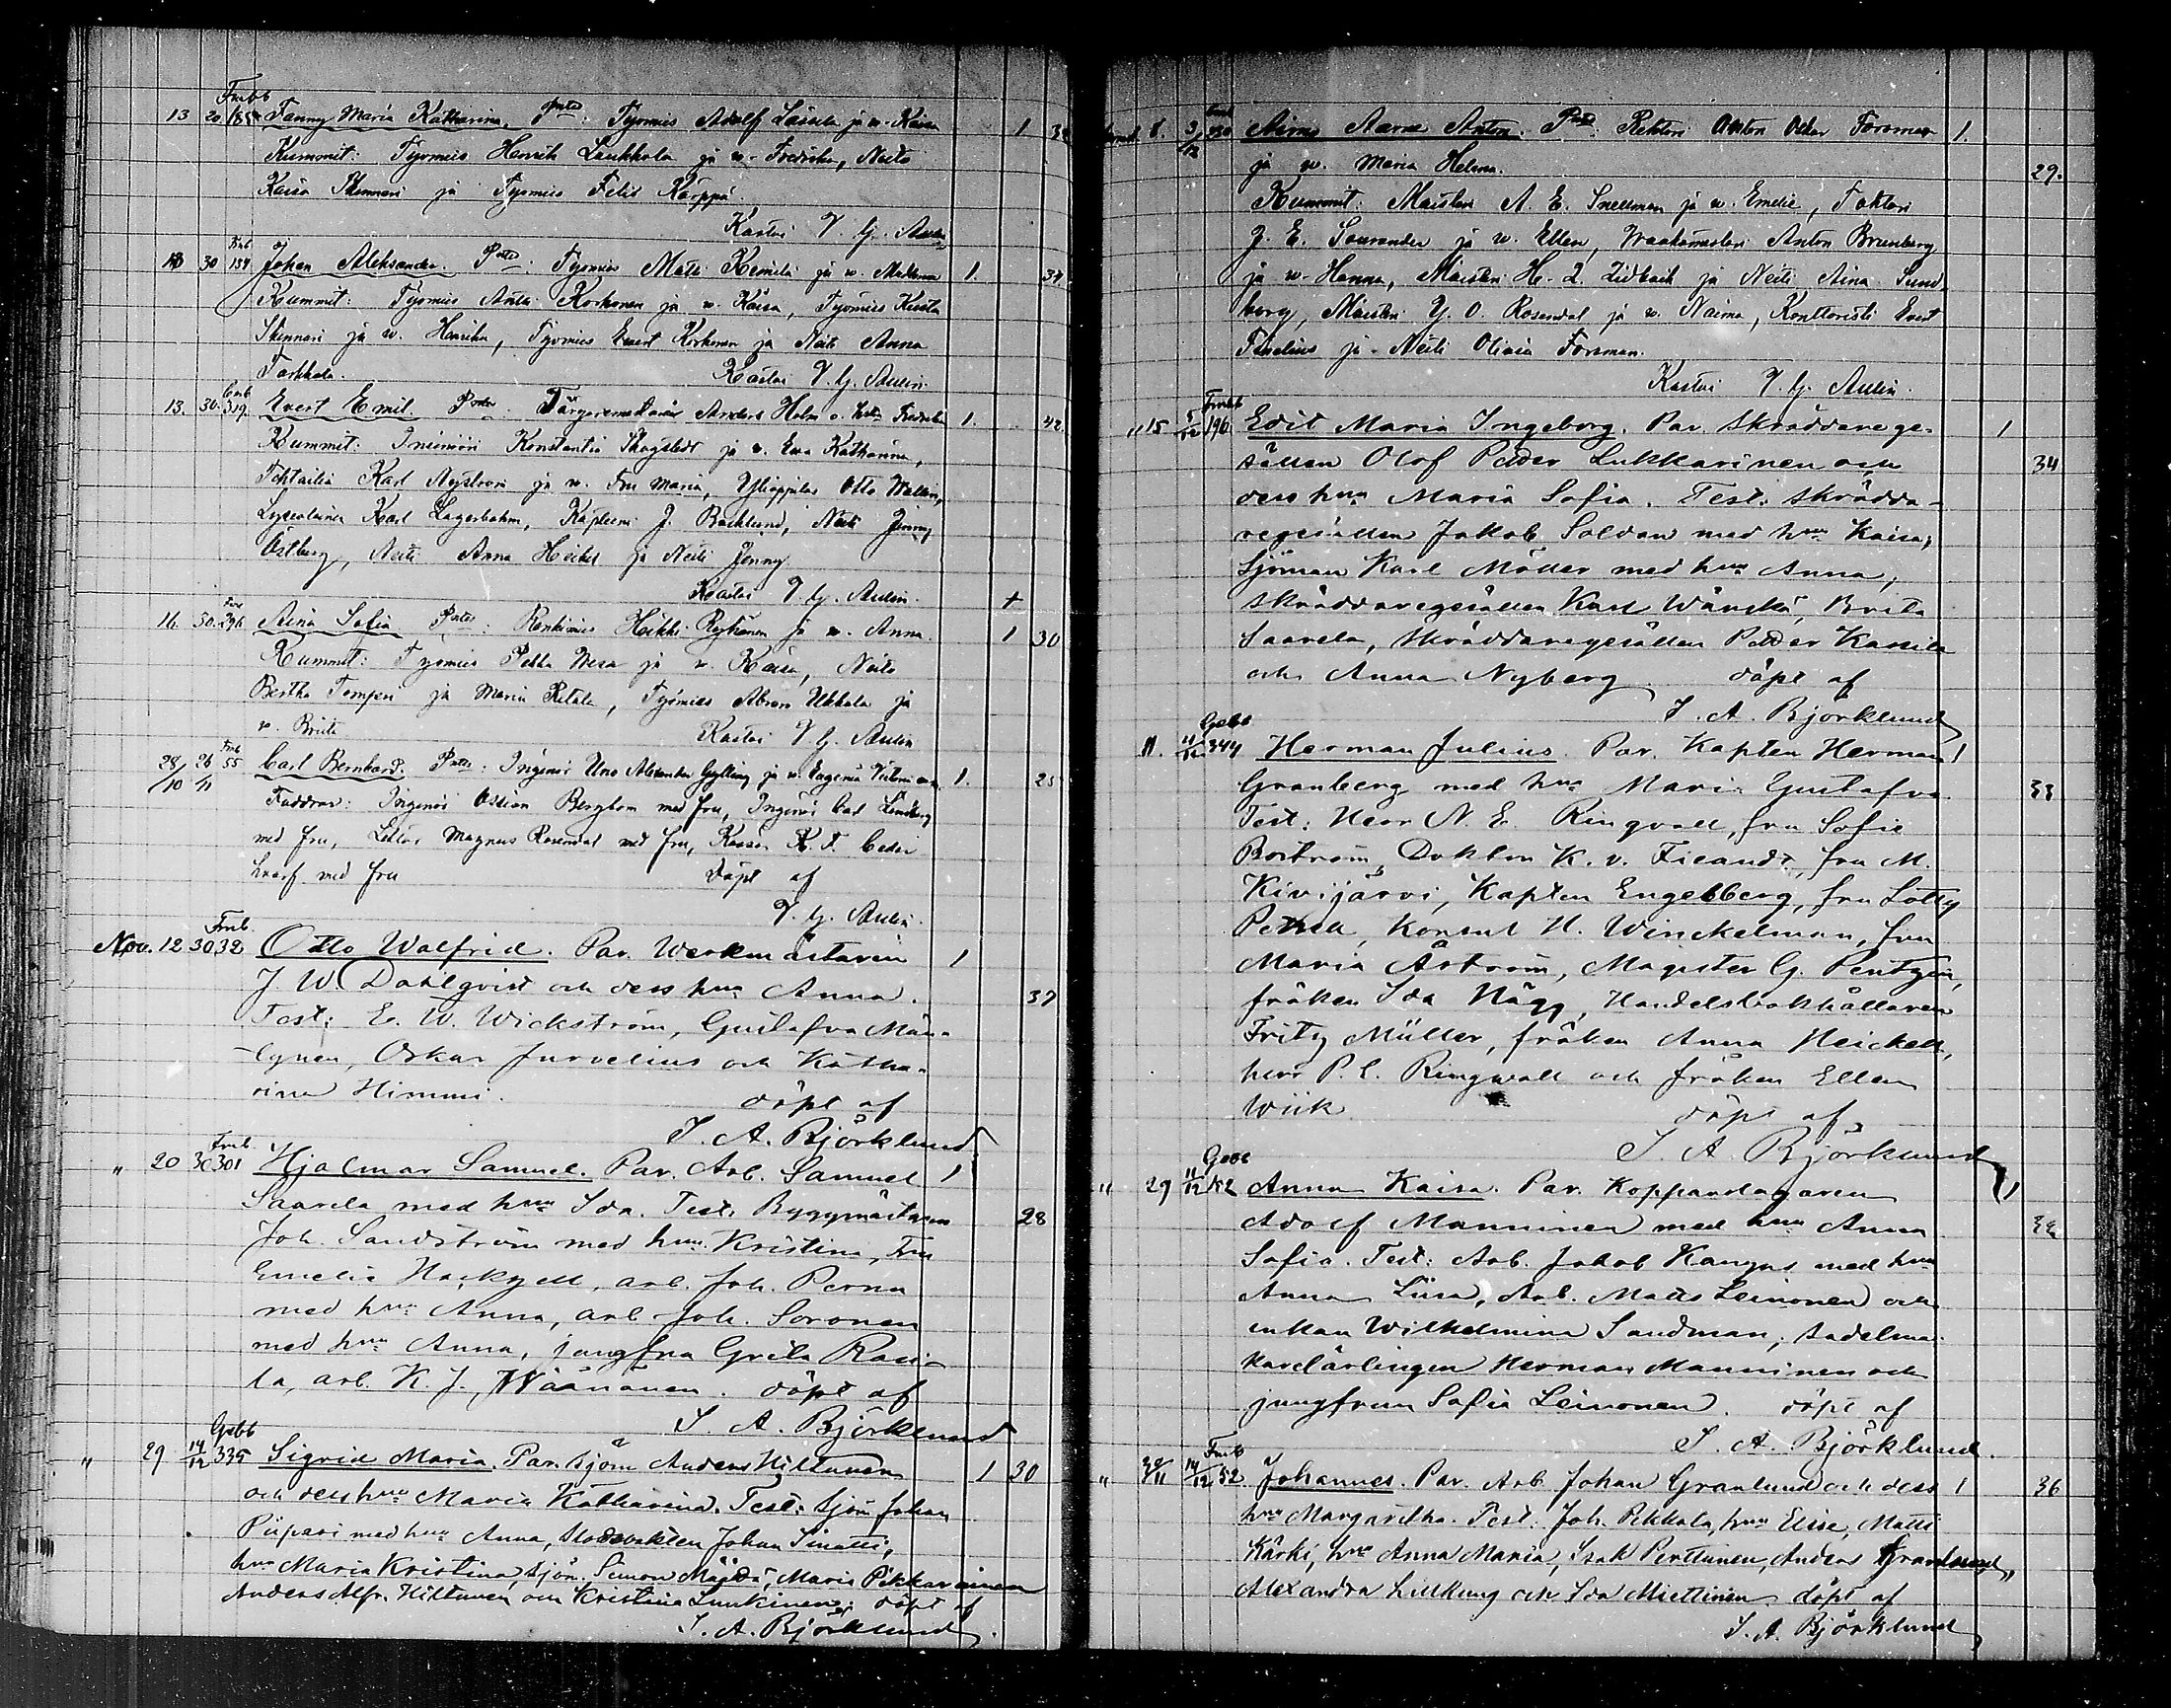 Fmbb
13 20 185 Fanny Maria Katharina. Ptes: Työmies Adolf ja v. Kaisa 1 32
Kummit: Työmies Henrik Laukkala ja v. Fredrika, Neito
Kaisa Skinnari ja Työmies Felix Karppa.
Kastoi V. G. Aulin
Fmb
13 30 154 Johan Aleksander. Ptes: Työmies Matti Remila ja v. 1. 37
Kummit: Työmies Antti Korhonen ja v. Kaisa, Työmies Kusta
Skinnari ja v. Henrika, Työmies Evert Korhonen ja Neito Anna
Tarkkala. Kastoi V. G. Aulin.
13. 30. 319. Evert Emil. Anders Holm o. Fredrika 1. 42
Kummit: Insinööri Konstantin Skogstedt ja v. Ewa Katharina,
Karl Nyström ja v. Fru Maria, Ylioppilas Otto Wallin,
Karl Lagerbohm, Kapteeni J. Backlund, Neiti Jenny
Östberg, Neiti Anna Heikel ja Neiti Jenny
Kastoi V. G. Aulin. +
16. 30. 296 Aina Sofia Ptes: Renkimies Heikki ja v. Anna. 1 30
Kummit: Työmies Pekka Wesa ja v. Kaisa, Neito
Bertha Temperi ja Maria Ritala, Työmies Abram Ukkola ja
v. Briita Kastoi V. G. Aulin
Fmb
28/10 26/11 55 Carl Bernhard. Ptes: Ingeniör Uno Alexander Gylling ja v. Eugenia 1. 25
Faddrar: Ingeniör Ossian Bergbom med fru, Ingeniör Carl Lindberg
med fru, Lektor Magnus Rosendal med fru, Kassör K. F. Ceder
hvarf med fru Döpt af
V. G. Aulin.
Fmb.
Nov. 12 30 32 Otto Walfrid. Par. Werkmästaren 1
J. W. Dahlqvist och dess hru Anna. 37
Test: E. W. Wickström, Gustafva Män-
Oskar Jurvelius och Katha-
rina Himmi. döpt af
J. A. Björklund
Fmb.
" 20 30 301 Hjalmar Samuel. Par. Arb. Samuel 1
Saarela med hru Ida. Test. Byggmästaren 28
Joh. Sandström med hru Kristina, Fru
Emelie Hackzell, arb. Joh. Perna
med hru Anna, arb. Joh. Soronen
med hru Anna, jungfru Greta Rasi-
la, arb. K. J. Wäänänen. döpt af
J. A. Björklund
Gebb
" 29 14/12 335 Sigrid Maria. Par. Sjöm Anders Hiltunen 1 30
och dess hru Maria Katharina. Test: Sjöm Johan
Piipari med hru Anna, Stadsvakten Johan Sinatti,
hru Maria Kristina, Sjöm. Simon Mäjdä, Maria Pikkarainen
Anders Alfr. Hiltunen och Kristina Luukinen. döpt af
J. A. Björklund.
8. 3/12 Aimo Aarne Anton. Ptes: Rehtori Anton Oskar Forsman 1.
ja v. Maria Helena. 29.
Kummit: Maisteri A. E. Snellman ja v. Emelie, Faktori
J. E. Sourander ja v. Ellen, Anton Brunberg
ja v. Hanna, Maisteri H. L. Lidbäck ja Neiti Aina Sund
berg, Maisteri Y. O. Rosendal ja v. Naima, Konttoristi Evert
Fenelius ja Neiti Olivia Forsman.
Kastoi V. G. Aulin.
Fmbb
" 15 5/12 196. Edit Maria Ingeborg. Par. Skräddarege- 1
sällen Olof Peder Lukkarinen och 34
dess hru Maria Sofia. Test: skrädda-
regesällen Jakob Soldan med hru Kaisa,
Sjöman Karl Möller med hru Anna,
Skräddaregesällen Karl Wänskä, Brita
Saarela, Skräddaregesällen Peder Kassila
och Anna Nyberg döpt af
J. A. Björklund
Gebb
11. 11/12 344 Herman Julius. Par. Kapten Herman 1
Granberg med hru Maria Gustafva 33
Test: Herr N. E. Ringvall, fru Sofie
Boström, Doktor K. v. Fieandt, fru M.
Kivijärvi, Kapten Engelberg, fru Lotty
Konsul H. Winckelman, fru
Maria Åström, Magister G. Pentzin,
fröken Ida Hägg, Handelsbokhållaren
Fritz Müller, fröken Anna Heickell,
herr P. C. Ringwall och fröken Ellen
Wiik döpt af
J. A. Björklund
Gebb
" 29 11/12 52 Anna Kaisa. Par. Koppardagaren 1
Adolf Manninen med hru Anna 32
Sofia. Test: Arb. Jakob Kangas med hru
Anna Liisa, Arb. Matts Leinonen och
enkan Wilhelmina Sandman, Sadelma-
karelärlingen Herman Manninen och
jungfrun Sofia Leinonen. döpt af
J. A. Björklund.
Fmb
" 30/11 14/12 52 Johannes. Par. Arb Johan Granlund och dess 1 36
hru Margaretha. Test. Joh. Pekkala, hru Elise, Matti
Kärki, hru Anna Maria, Isak Perttunen, Anders Granlund,
Alexandra Lillkung och Ida Miettinen döpt af
J. A. Björklund